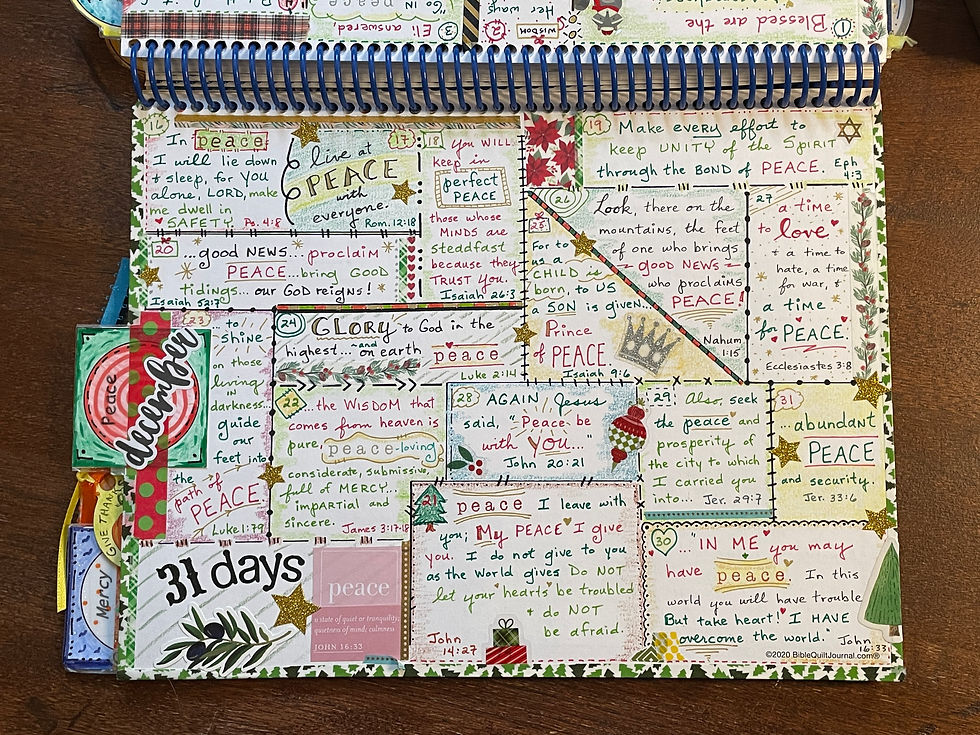 3
Eli answered
"Go in
2
WISDOM
Her ways
1
Blessed are the
16
In peace
I will lie down
+ sleep, for YOU
alone, LORD, make
me dwell in
SAFETY. Ps. 4:8
17
live at
PEACE
with
everyone.
Rom. 12:18
18
You WILL
keep in
perfect
PEACE
those whose
MINDS are
steadfast
because they
TRUST YOU.
Isaiah 26:3
19
Make every effort to
keep UNITY of the SPIRIT
through the BOND of PEACE. Eph
4:3
20
...good NEWS...proclaim
PEACE...bring GOOD
tidings... our GOD reigns!
Isaiah 52:7
25
For to
us a
CHILD is
born, to US
a SON is given...
Prince
of PEACE
Isaiah 9:6
26
Look, there on the
mountains, the feet
of one who brings
good NEWS
who proclaims
PEACE!
Nahum
1:15
27
a time
to love
+ a time to
hate, a time
for war, +
a time
for PEACE.
Ecclesiastes 3:8
23
to
shine
on those
living
in
darkness...
guide
our
feet into
the
path of
PEACE.
Luke 1:79
24
GLORY to God in the
highest... and on earth
peace
Luke 2:14
22
...the WISDOM that
comes from heaven is
pure,
peace-loving
considerate, submissive,
full of MERCY...
impartial and
sincere.
James 3:17-18
28
AGAIN Jesus
said, "Peace be
with YOU..."
John 20:21
29
Also, seek
the peace and
prosperity of
the city to which
I carried you
into... Jer. 29:7
31
...abundant
PEACE
and security.
Jer. 33:6
peace I leave with
you; My PEACE I give
you. I do not give to you
as the world gives Do NOT
let your hearts be troubled
+ do NOT
be afraid.
John
14:27
30
..."IN ME you may
have peace. In this
world you will have trouble
But take heart! I HAVE
overcome the world." John
16:33
©2020 BibleQuiltJournal.com®
31 days
peace
a state of quiet or tranquility;
quietness of mind; calmness
JOHN 16:33
Peace
december
GIVE THAN
Mercy